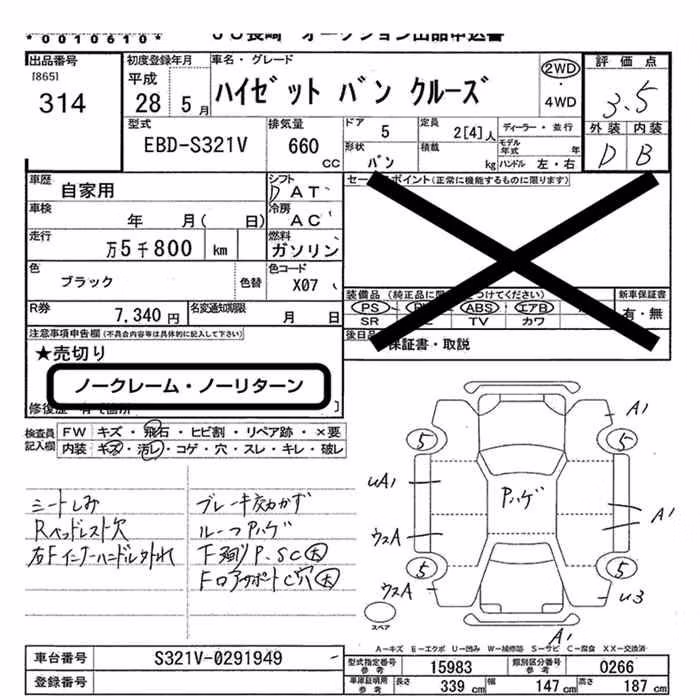 *0010610* JU長崎 オークション出品申込書
出品番号 初度登録年月 車名・グレード 評価点
[865] 平成
314 28 5月 ハイゼット バン クルーズ 2WD・4WD 3.5
外装 内装
型式 排気量 ドア 定員 ディーラー・並行 D B
EBD-S321V 660 CC 5 2[4]人 モデル年式 年
形状 積載
バン kg ハンドル 左・右
車歴 シフト セールスポイント(正常に機能するものに限ります)
自家用 DAT
車検 年 月( 日) 冷房 AC
走行 万5千800 km 燃料 ガソリン
色 ブラック 色替 色コード X07
装備品 (純正品に につけてください) 新車保証書
R券 7,340円 名変通知期限 月 日 PS ABS エアB 有・無
SR TV カワ
注意事項申告欄(不具合内容等は具体的に記入して下さい) 後日 保証書・取説
★売切り
ノークレーム・ノーリターン
修復歴
検査員記入欄 FW キズ・飛石・ヒビ割・リペア跡・×要
内装 キズ・汚れ・コゲ・穴・スレ・キレ・破レ
シートしみ
Rヘッドレスト穴
右Fインナーハンドル外れ
ブレーキ効かず
ルーフPハゲ
F廻りP.SC大
FロアサポートC穴大
A1
5 5
UA1 Pハゲ
A1
ウスA
5 5
ウスA U3
スペア A1
A-キズ E-エクボ U-凹み W-補修跡 S-サビ C-腐食 XX-交換済
車台番号 S321V-0291949 型式指定番号 参考 15983 類別区分番号 参考 0266
登録番号 車庫証明用 参考 長さ 339cm 幅 147cm 高さ 187cm